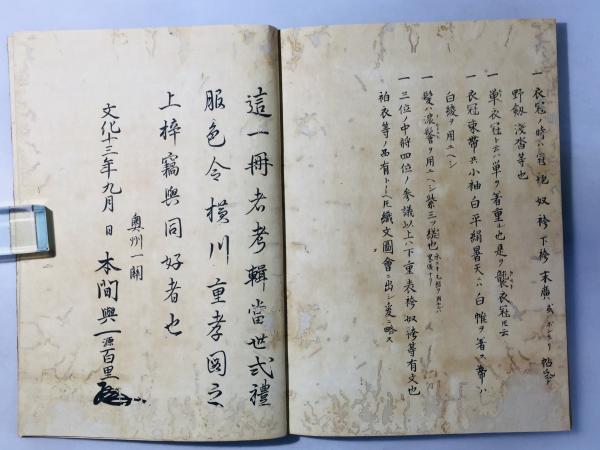 一 衣冠ノ時ハ冠 袍 奴袴 下袴 末廣 或ハボンボリ 帖紙
野劔 淺沓等也
一 單衣冠ト云ハ單ヲ着重ル也是ヲ襲衣冠ト云
一 衣冠束帯共小袖白平絹暑天ニハ白帷ヲ着ス帯ハ
白綾ヲ用ユヘシ
一 髪ハ濃鬢ヲ用ユヘシ紫三ツ縒也
一 三位ノ中將四位ノ參議以上ハ下重表袴奴袴等有文也
袙衣等ノ色有トイヘトモ織文圖會ニ出シ爰ニ略ス
這一冊者考輯當世弐禮
服色令横川重孝図之
上梓竊與同好者也
奥州一關
文化十三年九月 日 本間興一源百里